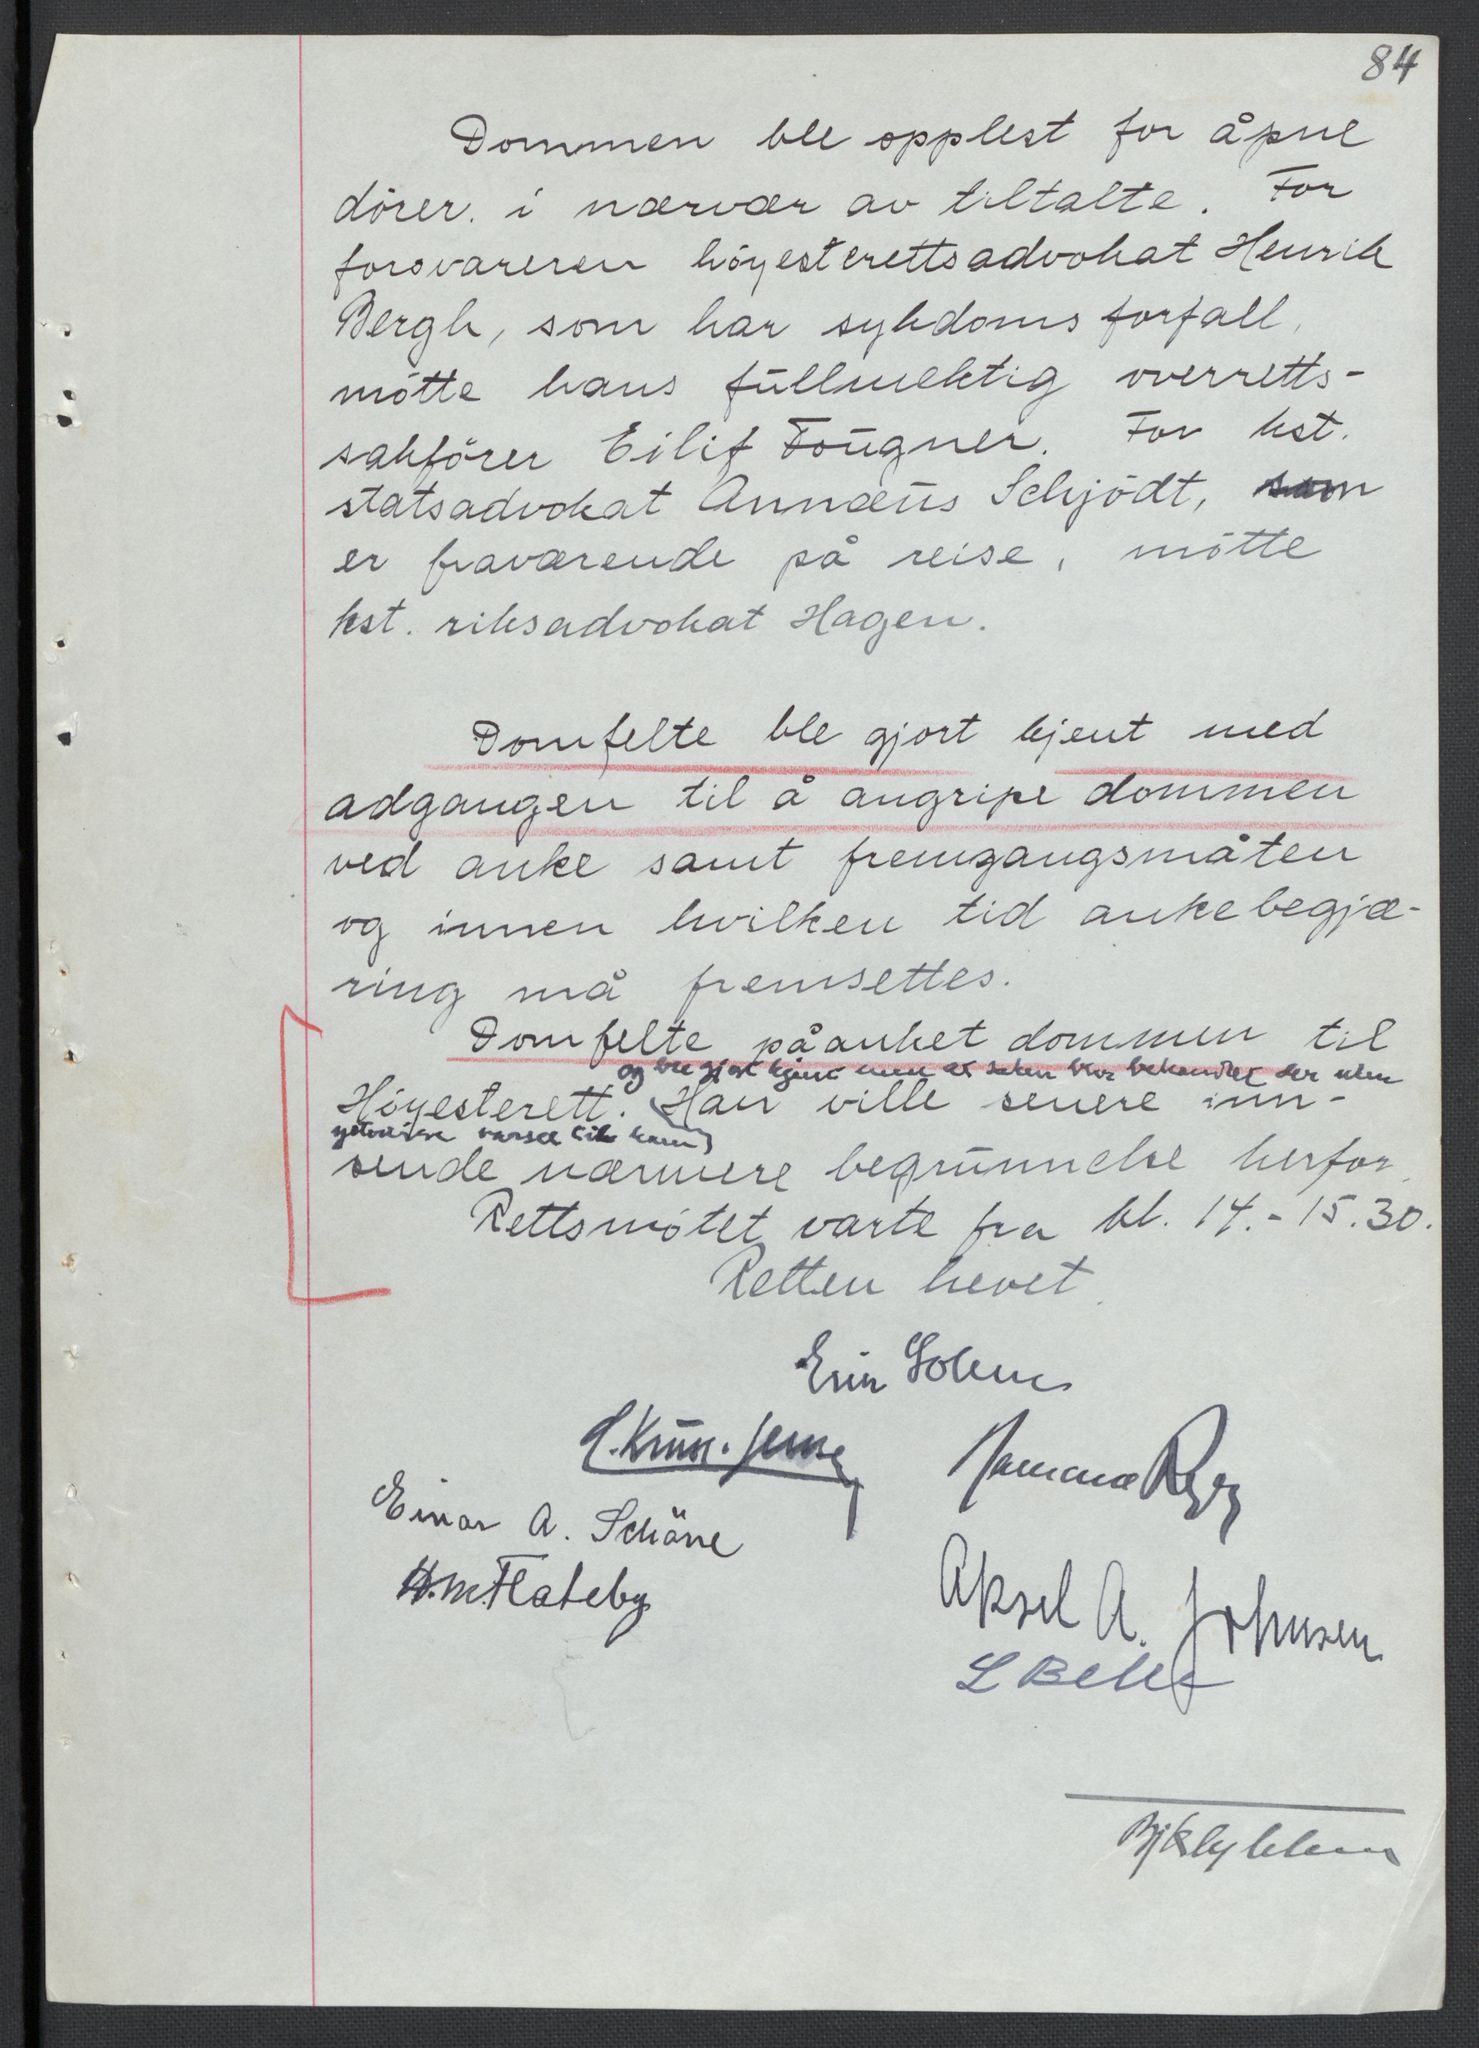 84
Dommen ble opplest for åpne
dörer. i nærvær av tiltalte. For
forsvareren höyesterettsadvokat Henrik
Bergh, som har sykdomsforfall,
mötte hans fullmektig overretts-
sakförer Eilif Fougner. For kst.
statsadvokat Annæus Schjödt, som
er fraværende på reise, mötte
kst. riksadvokat Hagen.
Domfelte ble gjort kjent med
adgangen til å angripe dommen
ved anke samt fremgangsmåten
og innen hvilken tid ankebegjæ-
ring må fremsettes.
Domfelte påanket dommen til
og ble gjort kjent med at saken blir behandlet der uten
Höyesterett. Han ville senere inn-
ytterligere varsel til ham
sende nærmere begrunnelse herfor.
Rettsmötet varte fra kl. 14.-15.30.
Retten hevet.
Erik Solem
Einar A. Schöne
H.M. Flateby
Aksel A. Johnsen
L Bekk